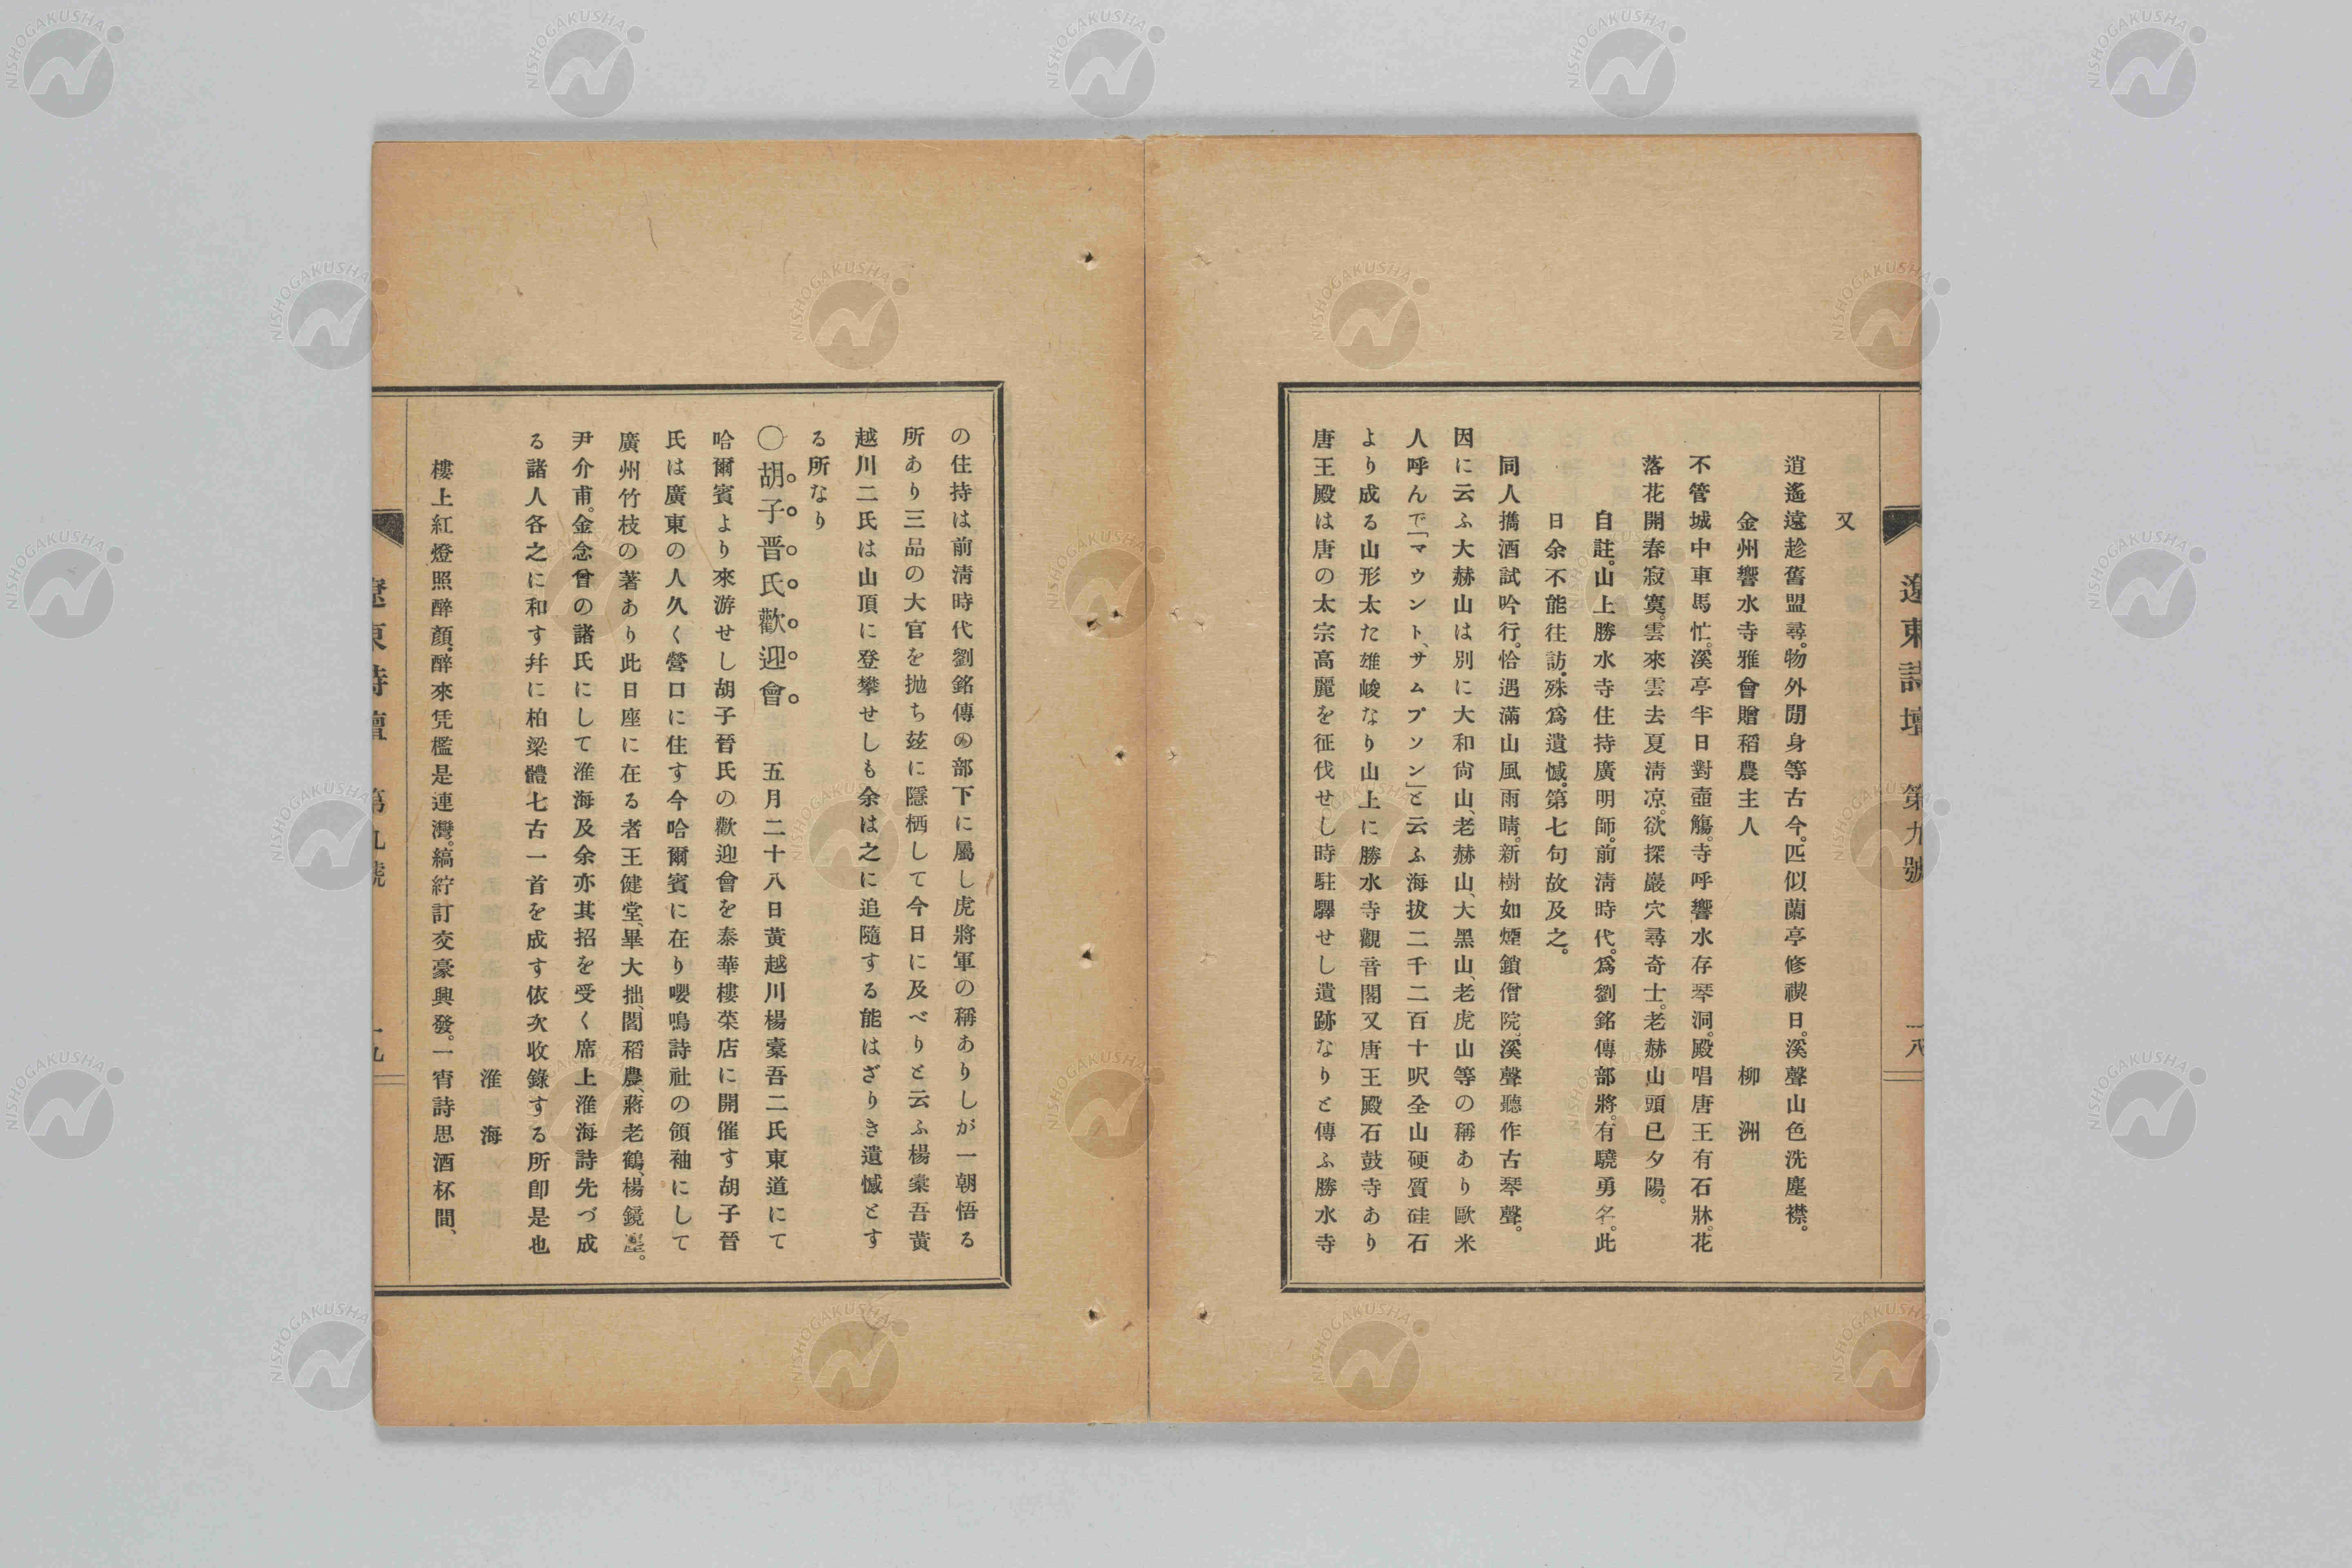 遼東詩壇 第九號 一八
又
逍遙遠趁舊盟尋。物外閒身等古今。匹似蘭亭修禊日。溪聲山色洗塵襟。
金州響水寺雅會贈稻農主人 柳洲
不管城中車馬忙。溪亭半日對壺觴。寺呼響水存琴洞。殿唱唐王有石牀。花
落花開春寂寞。雲來雲去夏淸凉。欲探巖穴尋奇士。老赫山頭已夕陽。
自註。山上勝水寺住持廣明師。前淸時代。爲劉銘傳部將。有驍勇名。此
日余不能往訪。殊爲遺憾。第七句故及之。
同人擕酒試吟行。恰遇滿山風雨晴。新樹如煙鎖僧院。溪聲聽作古琴聲。
因に云ふ大赫山は別に大和尙山、老赫山、大黑山、老虎山等の稱あり歐米
人呼んで「マウント、サムプソン」と云ふ海拔二千二百十呎全山硬質硅石
より成る山形太た雄峻なり山上に勝水寺觀音閣又唐王殿石鼓寺あり
唐王殿は唐の太宗高麗を征伐せし時駐驛せし遺跡なりと傳ふ勝水寺
の住持は前淸時代劉銘傳の部下に屬し虎將軍の稱ありしが一朝悟る
所あり三品の大官を抛ち玆に隱栖して今日に及べりと云ふ楊槖吾黃
越川二氏は山頂に登攀せしも余は之に追隨する能はざりき遺憾とす
る所なり
〇胡子晋氏歡迎會。 五月二十八日黃越川楊槖吾二氏東道にて
哈爾賓より來游せし胡子晉氏の歡迎會を泰華樓菜店に開催す胡子晉
氏は廣東の人久く營口に住す今哈爾賓に在り嚶鳴詩社の領袖にして
廣州竹枝の著あり此日座に在る者王健堂、畢大拙、閻稻農、蔣老鶴、楊鏡。
尹介甫。金念曾の諸氏にして淮海及余亦其招を受く席上淮海詩先づ成
る諸人各之に和す幷に柏梁體七古一首を成す依次收錄する所卽是也
淮海
樓上紅燈照醉顏。醉來凭檻是連灣。縞紵訂交豪興發。一宵詩思酒杯間、
遼東詩壇 第九號 一九
NISHOGAKUSHA